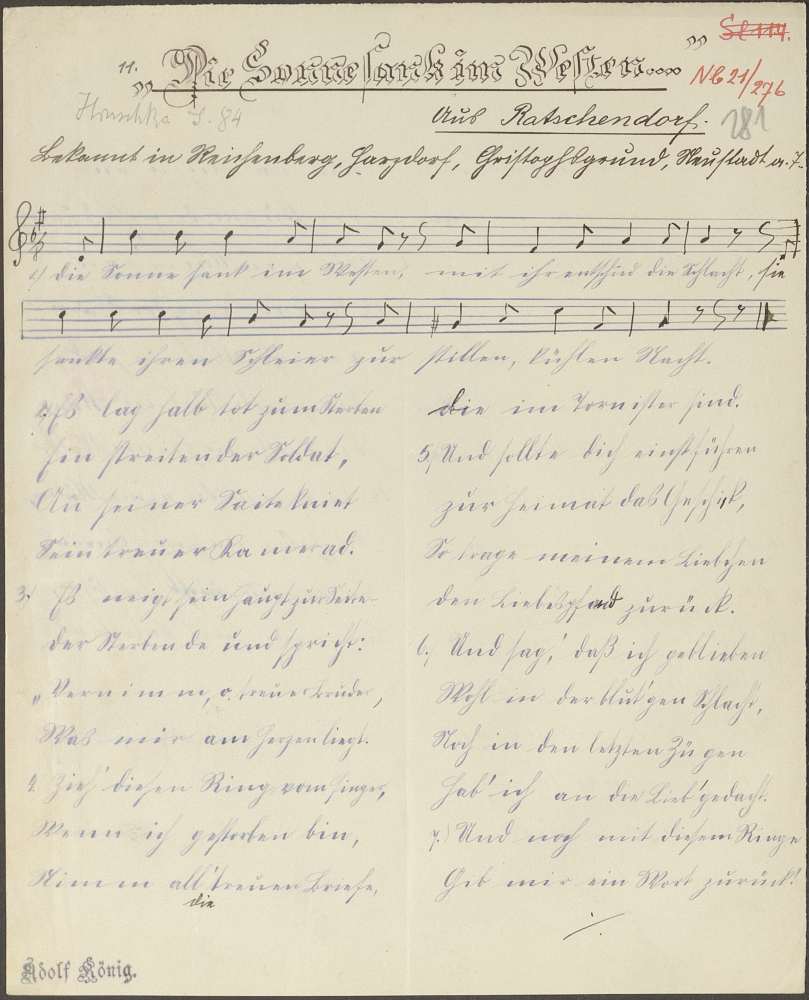 11. „Die Sonne sank im Westen...."
Sl 114.
NB 21/276
Hruschka S. 84
Aus Ratschendorf.
281
Bekannt in Reichenberg, Harzdorf, Christophsgrund, Neustadt a. T.
1.) Die Sonne sank im Westen, mit ihr entschied die Schlacht, sie
senkte ihren Schleier zur stillen, kühlen Nacht.
2.) Es lag halb tot zum Sterben
Ein streitender Soldat,
An seiner Seite kniet
Sein treuer Kamerad.
3.) Es neigt sein Haupt zur Seite
Der Sterbende und spricht:
„Vernimm, o treuer Bruder,
Was mir am Herzen liegt.
4. Zieh' diesen Ring vom Finger,
Wenn ich gestorben bin,
Nimm all' treuen Briefe,
die
Die im Tornister sind.
5.) Und sollte dich einst führen
zur Heimat das Geschik,
So trage meinem Liebchen
den Liebespfand zurück.
6.) Und sag', daß ich geblieben
Wohl in der blut'gen Schlacht,
Noch in den letzten Zügen
Hab' ich an die Lieb' gedacht.
7.) Und noch mit diesem Ringe
Gib mir ein Wort zurück!
Adolf König.